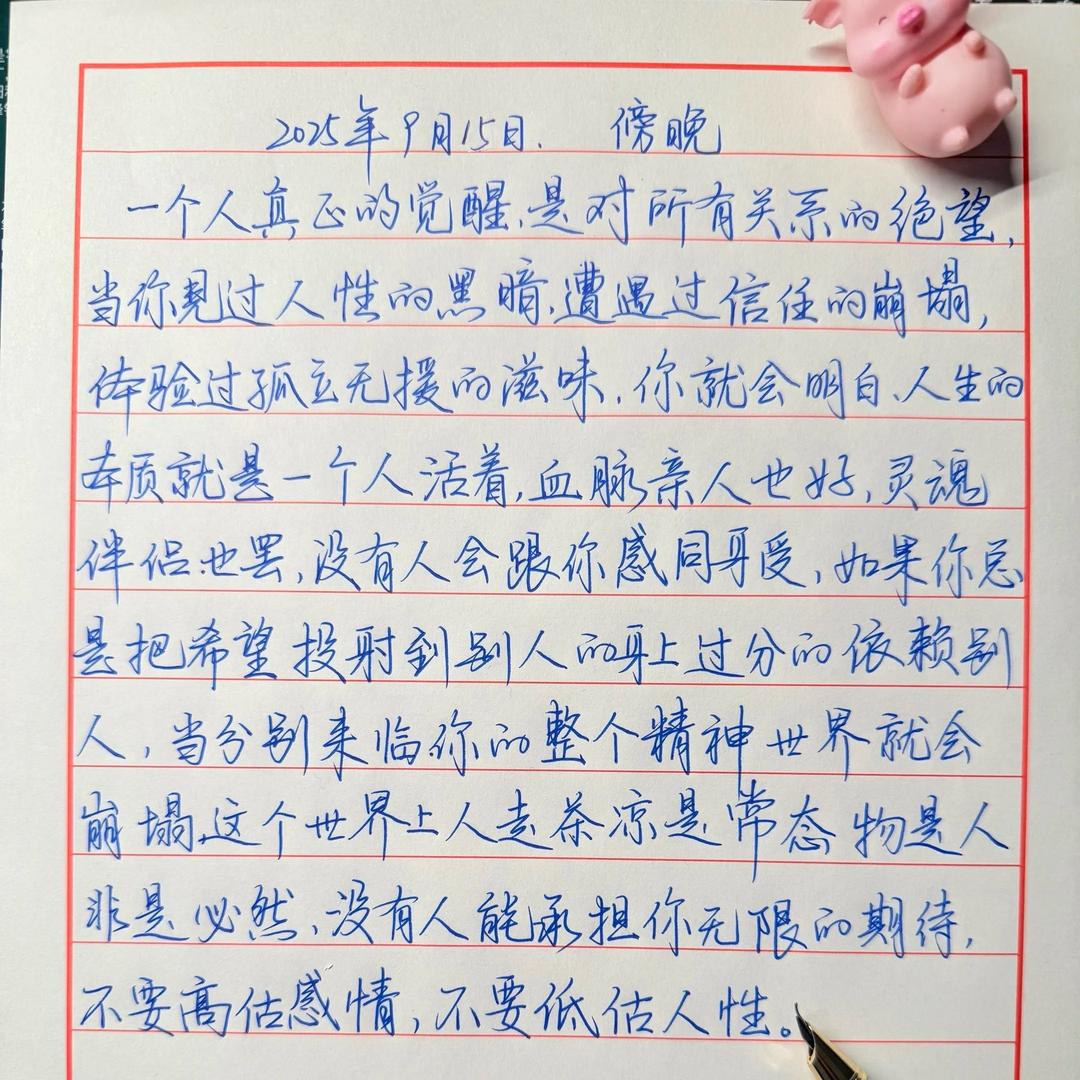 2025年9月15日. 傍晚
一个人真正的觉醒,是对所有关系的绝望,
当你见过人性的黑暗,遭遇过信任的崩塌,
体验过孤立无援的滋味,你就会明白、人生的
本质就是一个人活着,血脉亲人也好,灵魂
伴侣也罢,没有人会跟你感同身受,如果你总
是把希望投射到别人的身上过分的依赖别
人,当分别来临你的整个精神世界就会
崩塌,这个世界上人走茶凉是常态物是人
非是必然、没有人能承担你无限的期待,
不要高估感情,不要低估人性。